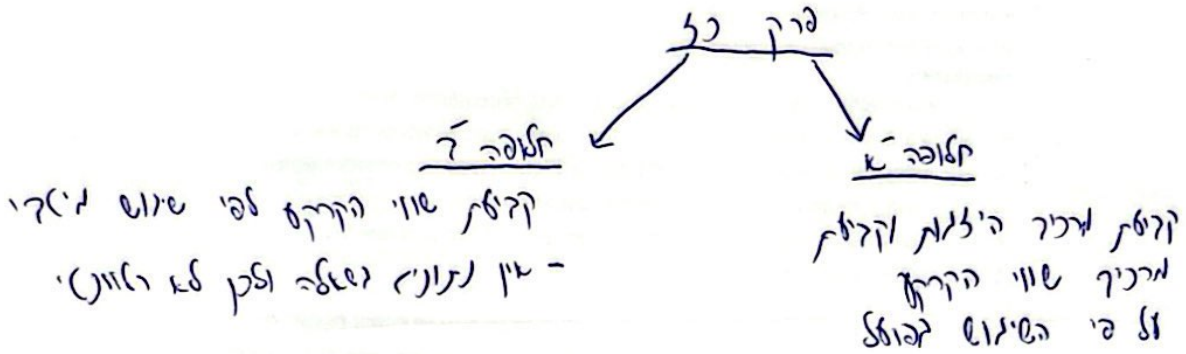 פרק כז
חלופה א'
קביעת מרכיב היזמות וקביעת
מרכיב שווי הקרקע
על פי השימוש בפועל
חלופה ב'
קביעת שווי הקרקע לפי שימוש מיטבי
- אין נתונים בשאלה ולכן לא רלוונטי